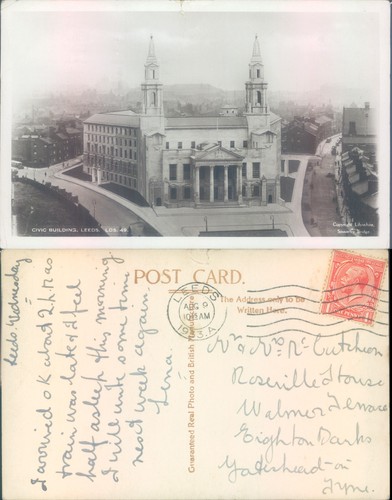 CIVIC BUILDING, LEEDS. LDS. 48.
POST CARD.
The Address only to be
Written Here.
LEEDS
AUG 9
10 AM
1933.A
Guaranteed Real Photo and British Manufacture
Leeds. Wednesday
I arrived ok about 2h as
train was late & I feel
half asleep this morning
I will write some time
next week again.
Lena
Mr & Mrs Mc Cutcheon
Roseville House
Walmer Terrace
Eighton Banks
Gateshead-on
Tyne.